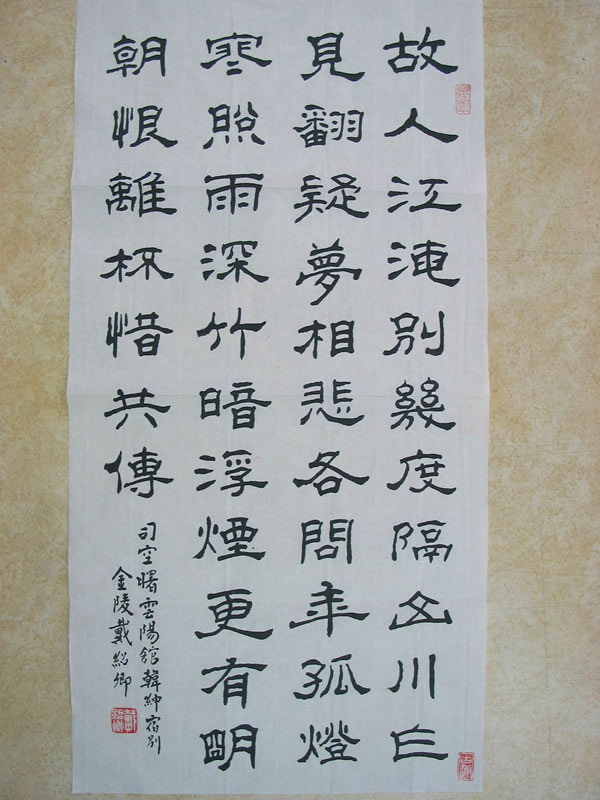 故人江海別幾度隔山川乍
見翻疑夢相悲各問年孤燈
寒照雨深竹暗浮煙更有明
朝恨離杯惜共傳
司空曙雲陽舘韓紳宿別
金陵戴紹卿